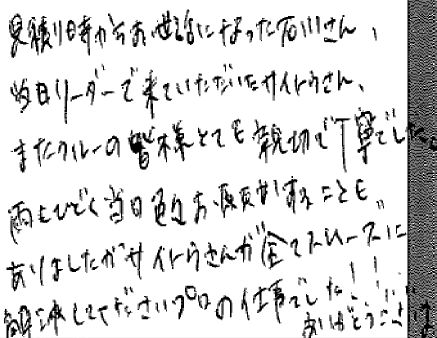 見積り時からお世話になった石川さん、
当日リーダーで来ていただいたサイトウさん、
またクルーの皆様とても親切で丁寧でした。
雨もひどく当日色々お願いすることも
ありましたがサイトウさんが全てスムーズに
解決してくださいプロの仕事でした!!
ありがとうござ